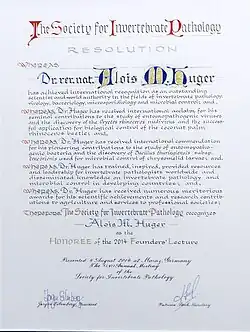 The Society for Invertebrate Pathology
RESOLUTION
Whereas
Dr. rer. nat. Alois M. Huger
has achieved international recognition as an outstanding
scientist and world authority in the fields of invertebrate pathology
virology, bacteriology, microsporidiology and microbial control; and,
Whereas, Dr. Huger has received international acclaim for his
seminal contributions to the study of entomopathogenic viruses
and the discovery of the Oryctes rhinoceros nudivirus and the success-
ful application for biological control of the coconut palm
rhinoceros beetle; and,
Whereas, Dr. Huger has received international commendation
for his pioneering contributions to the study of entomopatho-
genic bacteria and the discovery of Bacillus thuringiensis subsp.
for microbial control of chrysomelid larvae; and,
Whereas, Dr. Huger has trained, inspired, provided resources
and leadership for invertebrate pathologists worldwide and
disseminated knowledge on invertebrate pathology and
microbial control in developing countries; and,
Whereas, Dr. Huger has received numerous meritorious
awards for his scientific achievements and research contrib-
utions to agriculture and services to professional societies;
Therefore The Society for Invertebrate Pathology recognizes
Alois M. Huger
as the
HONOREE of the 2014 Founders' Lecture
Presented August 2014 at Mainz, Germany
Meeting
of the
Society for Invertebrate Pathology
President